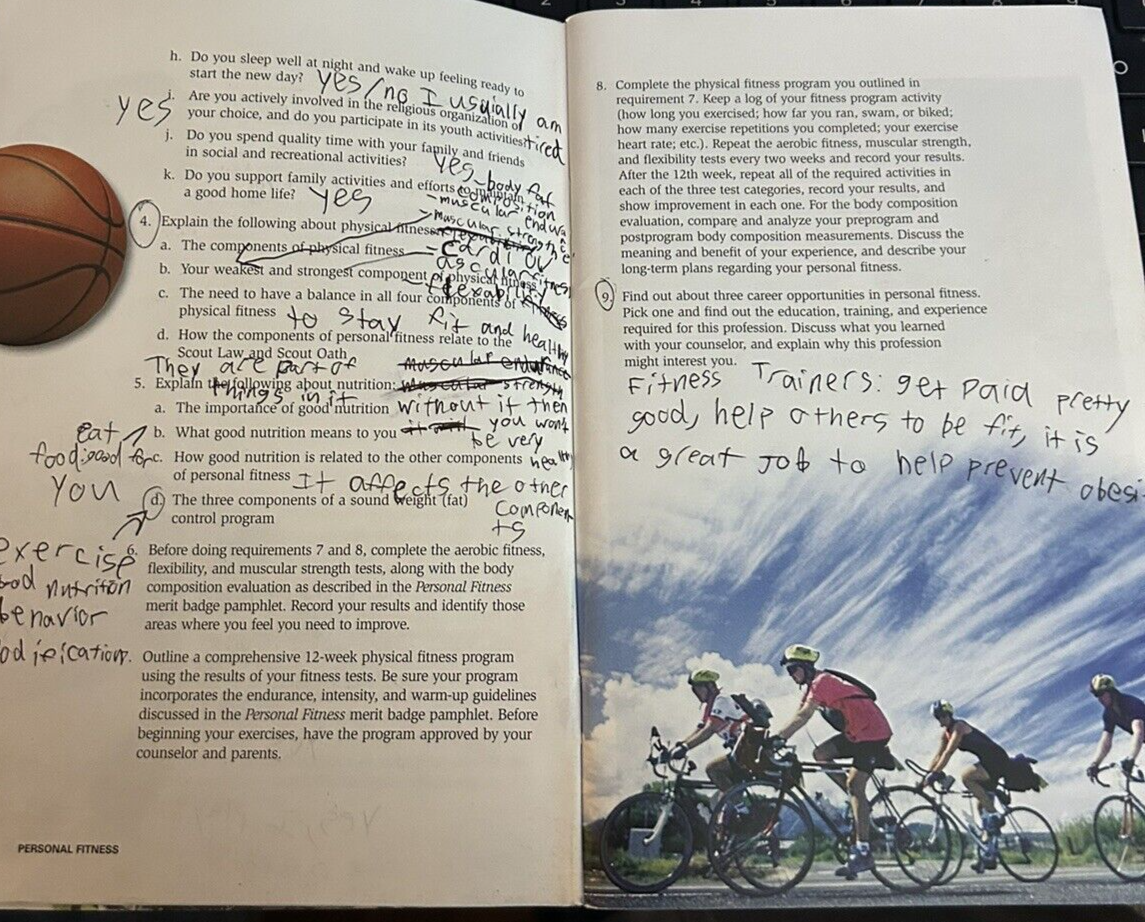 h. Do you sleep well at night and wake up feeling ready to
start the new day? yes/no I usually am
tired
yes
i. Are you actively involved in the religious organization of
your choice, and do you participate in its youth activities?
j. Do you spend quality time with your family and friends
in social and recreational activities? yes
k. Do you support family activities and efforts to maintain
a good home life? yes
-body fat
composition
-muscular endurance
-muscular strength
4. Explain the following about physical fitness:
a. The components of physical fitness
b. Your weakest and strongest component of physical fitness
c. The need to have a balance in all four components of
physical fitness to stay fit and healthy
d. How the components of personal fitness relate to the
Scout Law and Scout Oath
They are part of
things in it
muscular endurance
muscular strength
5. Explain the following about nutrition:
a. The importance of good nutrition without it then
you wont
be very
healthy
b. What good nutrition means to you
eat
food good for
you
c. How good nutrition is related to the other components
of personal fitness It affects the other
components
d. The three components of a sound weight (fat)
control program
exercise
nutrition
6. Before doing requirements 7 and 8, complete the aerobic fitness,
flexibility, and muscular strength tests, along with the body
composition evaluation as described in the Personal Fitness
merit badge pamphlet. Record your results and identify those
areas where you feel you need to improve.
Outline a comprehensive 12-week physical fitness program
using the results of your fitness tests. Be sure your program
incorporates the endurance, intensity, and warm-up guidelines
discussed in the Personal Fitness merit badge pamphlet. Before
beginning your exercises, have the program approved by your
counselor and parents.
PERSONAL FITNESS
8. Complete the physical fitness program you outlined in
requirement 7. Keep a log of your fitness program activity
(how long you exercised; how far you ran, swam, or biked;
how many exercise repetitions you completed; your exercise
heart rate; etc.). Repeat the aerobic fitness, muscular strength,
and flexibility tests every two weeks and record your results.
After the 12th week, repeat all of the required activities in
each of the three test categories, record your results, and
show improvement in each one. For the body composition
evaluation, compare and analyze your preprogram and
postprogram body composition measurements. Discuss the
meaning and benefit of your experience, and describe your
long-term plans regarding your personal fitness.
9. Find out about three career opportunities in personal fitness.
Pick one and find out the education, training, and experience
required for this profession. Discuss what you learned
with your counselor, and explain why this profession
might interest you.
Fitness Trainers: get paid pretty
good, help others to be fit, it is
a great job to help prevent obesi